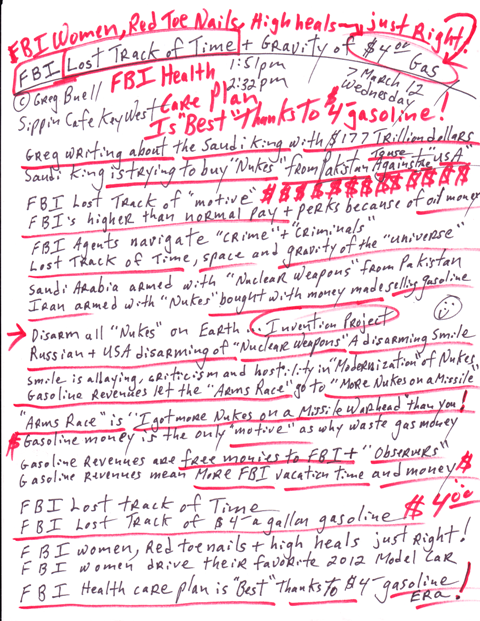 FBI Women, Red Toe Nails, High heals - just Right!
FBI Lost Track of Time + Gravity of $4.00 Gas
© Greg Buell FBI Health 1:51pm > March 12
Sippin Cafe Key West Care plan 2:32pm Wednesday
Is "Best" Thanks to $4- gasoline!
Greg writing about the Saudi King with $177 Trillion dollars
Saudi King is trying to buy "Nukes" from Pakistan to use Against the "USA"
FBI Lost Track of "motive" $ $ $ $ $ $ $ $ $ $ $
FBI's higher than normal pay + perks because of oil money
FBI Agents navigate "crime" + "criminals"
Lost Track of Time, space and gravity of the "universe"
Saudi Arabia armed with "Nuclear weapons" from Pakistan
Iran armed with "Nukes" bought with money made selling gasoline
→ Disarm all "Nukes" on Earth... Invention Project
Russian + USA disarming of "Nuclear Weapons" A disarming Smile
Smile is allaying, criticism and hostility in "Modernization" of Nukes
Gasoline Revenues let the "Arms Race" go to "More Nukes on a Missile"
"Arms Race" is "I got more Nukes on a Missile Warhead than you!
$ Gasoline money is the only "motive" as why waste gas money
Gasoline Revenues are free monies to FBI + "Observers"
Gasoline Revenues mean More FBI vacation time and money $
FBI Lost track of Time $4.00
FBI Lost Track of $4- a gallon gasoline
FBI women, Red toenails + high heals just Right!
FBI women drive their favorite 2012 Model Car
FBI Health care plan is "Best" Thanks to $4- gasoline ERA!